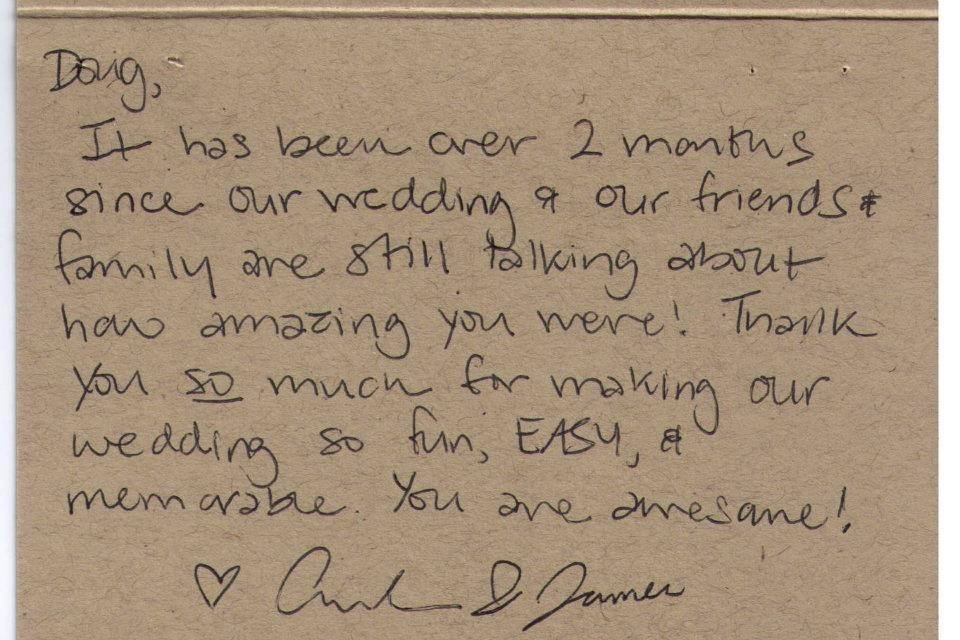 Doug,
It has been over 2 months
since our wedding & our friends &
family are still talking about
how amazing you were! Thank
you so much for making our
wedding so fun, EASY, &
memorable. You are awesome!
♡ & James